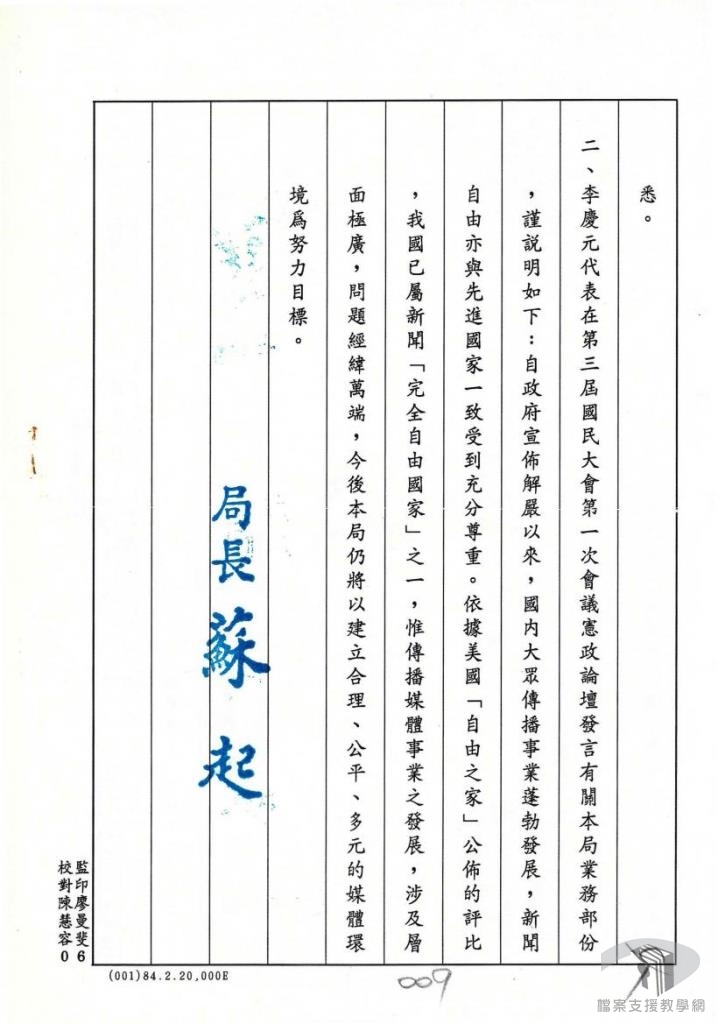 悉。
二、李慶元代表在第三屆國民大會第一次會議憲政論壇發言有關本局業務部份
，謹説明如下：自政府宣佈解嚴以來，國内大眾傳播事業蓬勃發展，新聞
自由亦與先進國家一致受到充分尊重。依據美國「自由之家」公佈的評比
，我國已屬新聞「完全自由國家」之一，惟傳播媒體事業之發展，涉及層
面極廣，問題經緯萬端，今後本局仍將以建立合理、公平、多元的媒體環
境爲努力目標。
局長蘇起
監印廖曼斐6
校對陳慧容0
(001)84.2.20,000E
009
檔案支援教學網